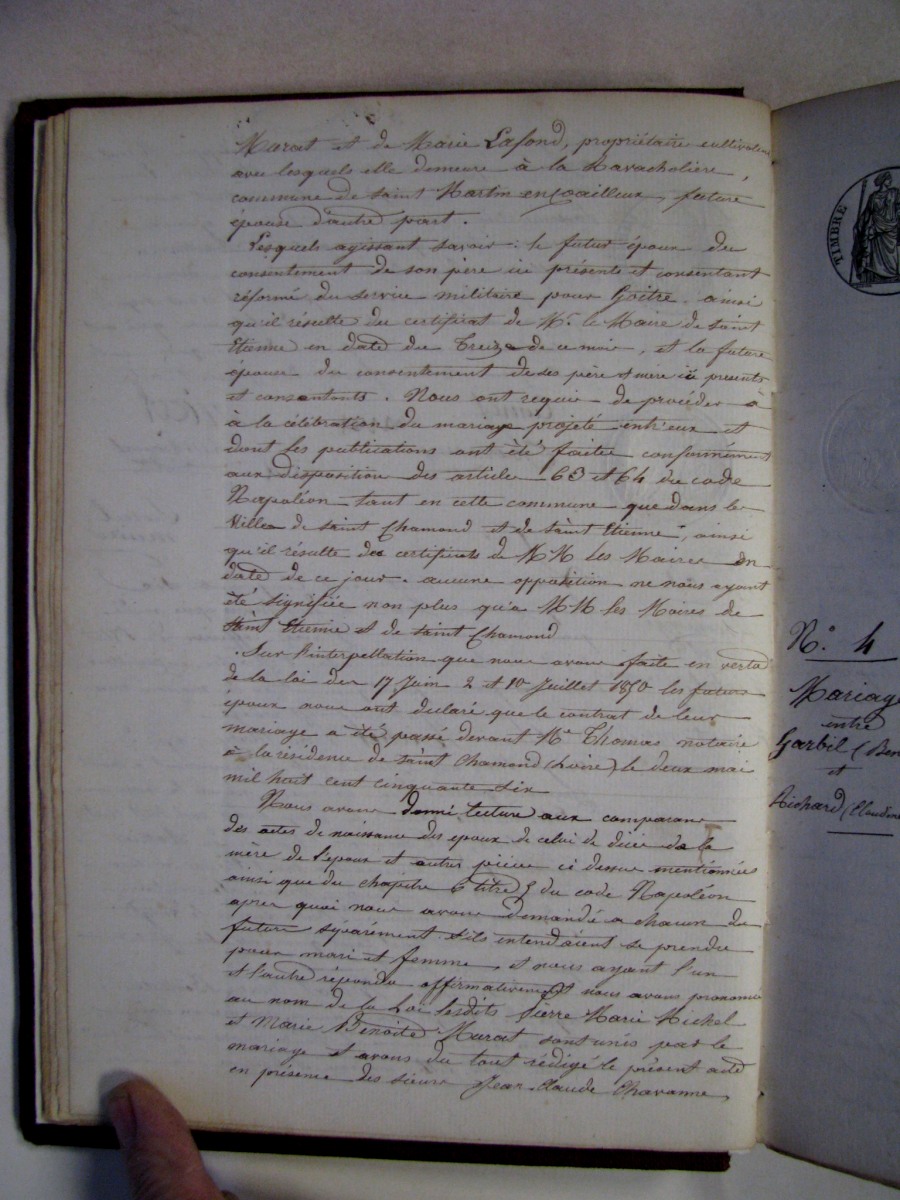 Marat et de Marie Lafond, propriétaire cultivateur
avec lesquels elle demeure à la Ravacholière,
commune de saint Martin en Coailleux, future
épouse d'autre part.
Lesquels agissant savoir : le futur époux du
consentement de son père ici présent et consentant
réformé du service militaire pour Goitre. ainsi
qu'il résulte du certificat de Mr. le Maire de saint
Etienne en date du Treize de ce mois, et la future
épouse du consentement de ses père et mère ici présents
et consentants. Nous ont requis de procéder à
à la célébration du mariage projeté entr'eux et
dont les publications ont été faites conformément
aux disposition des article 63 et 64 du code
Napoléon tant en cette commune que dans les
Villes de saint Chamond et de saint Etienne, ainsi
qu'il résulte des certificats de MM les Maires en
date de ce jour. aucune opposition ne nous ayant
été signifiée non plus qu'à MM les Maires de
saint Etienne et de saint Chamond
. Sur l'interpellation que nous avons faite en vertu
de la loi des 17 Juin 2 et 10 Juillet 1850 les futurs
époux nous ont déclaré que le contrat de leur
mariage a été passé devant Me Thomas notaire
à la résidence de saint Chamond (Loire) le deux mai
mil huit cent cinquante six
Nous avons donné lecture aux comparans
des actes de naissance des époux de celui de décès de la
mère de l'époux et autres pièces ci dessus mentionnées
ainsi que du chapitre 6 titre 5 du code Napoléon
après quoi nous avons demandé a chacun des
futurs séparément s'ils entendaient se prendre
pour mari et femme, et nous ayant l'un
et l'autre répondu affirmativement nous avons prononcé
au nom de la Loi lesdits Pierre Marie Michel
et Marie Benoite Marat sont unis par le
mariage et avons du tout rédigé le présent acte
en présence des sieurs Jean Claude Chavanne,
TIMBRE
No. 4
Mariage
entre
Garbil (Ben
et
Richard (Claudine